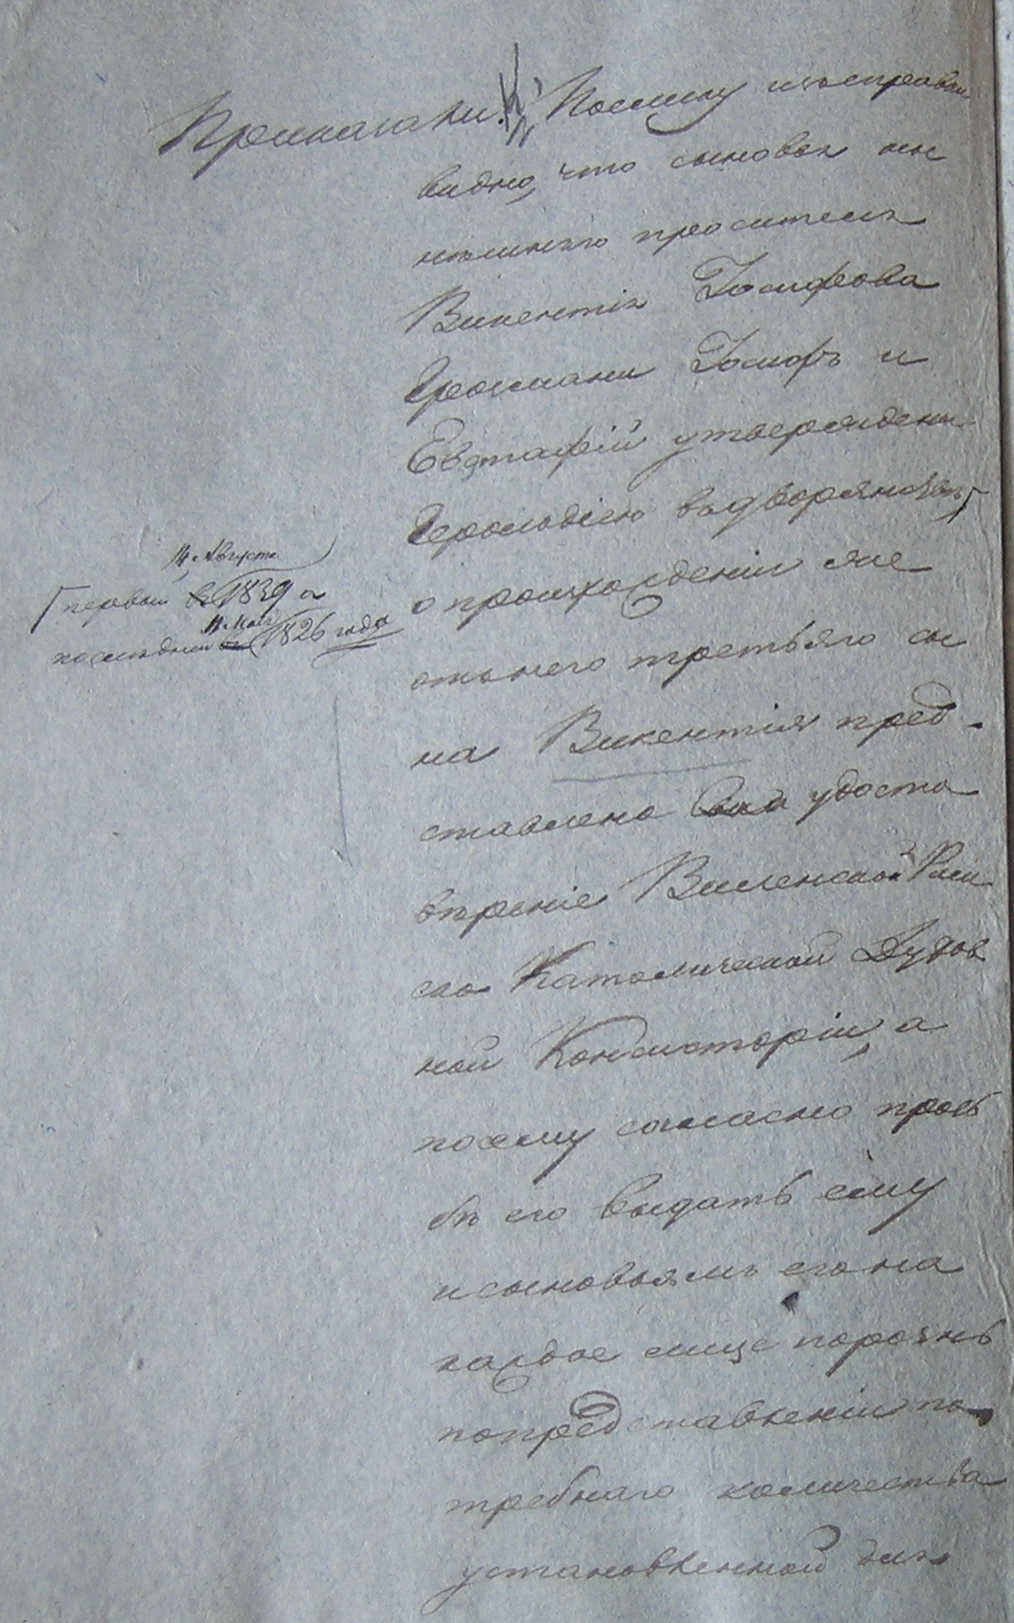 Приказали: Поелику изъ справки
видно, что сыновья ны
нѣшняго просителя
Викентія Іосифова
Іосифъ и
Евстафій утверждены
Герольдіею въ дворянствѣ,
о происхожденіи же
отъ него третьяго сы
на Викентія пред-
ставлено удосто
вѣреніе Виленской Рим
ско Католической Духов
ной Консисторіи, а
посему согласно прозь
бѣ его выдать ему
и сыновьямъ его на
каждое лице порознь
по представленіи по-
требнаго количества
установленной для
14 Августа
первый 1839 а
11 Мая
послѣдній 1826 года